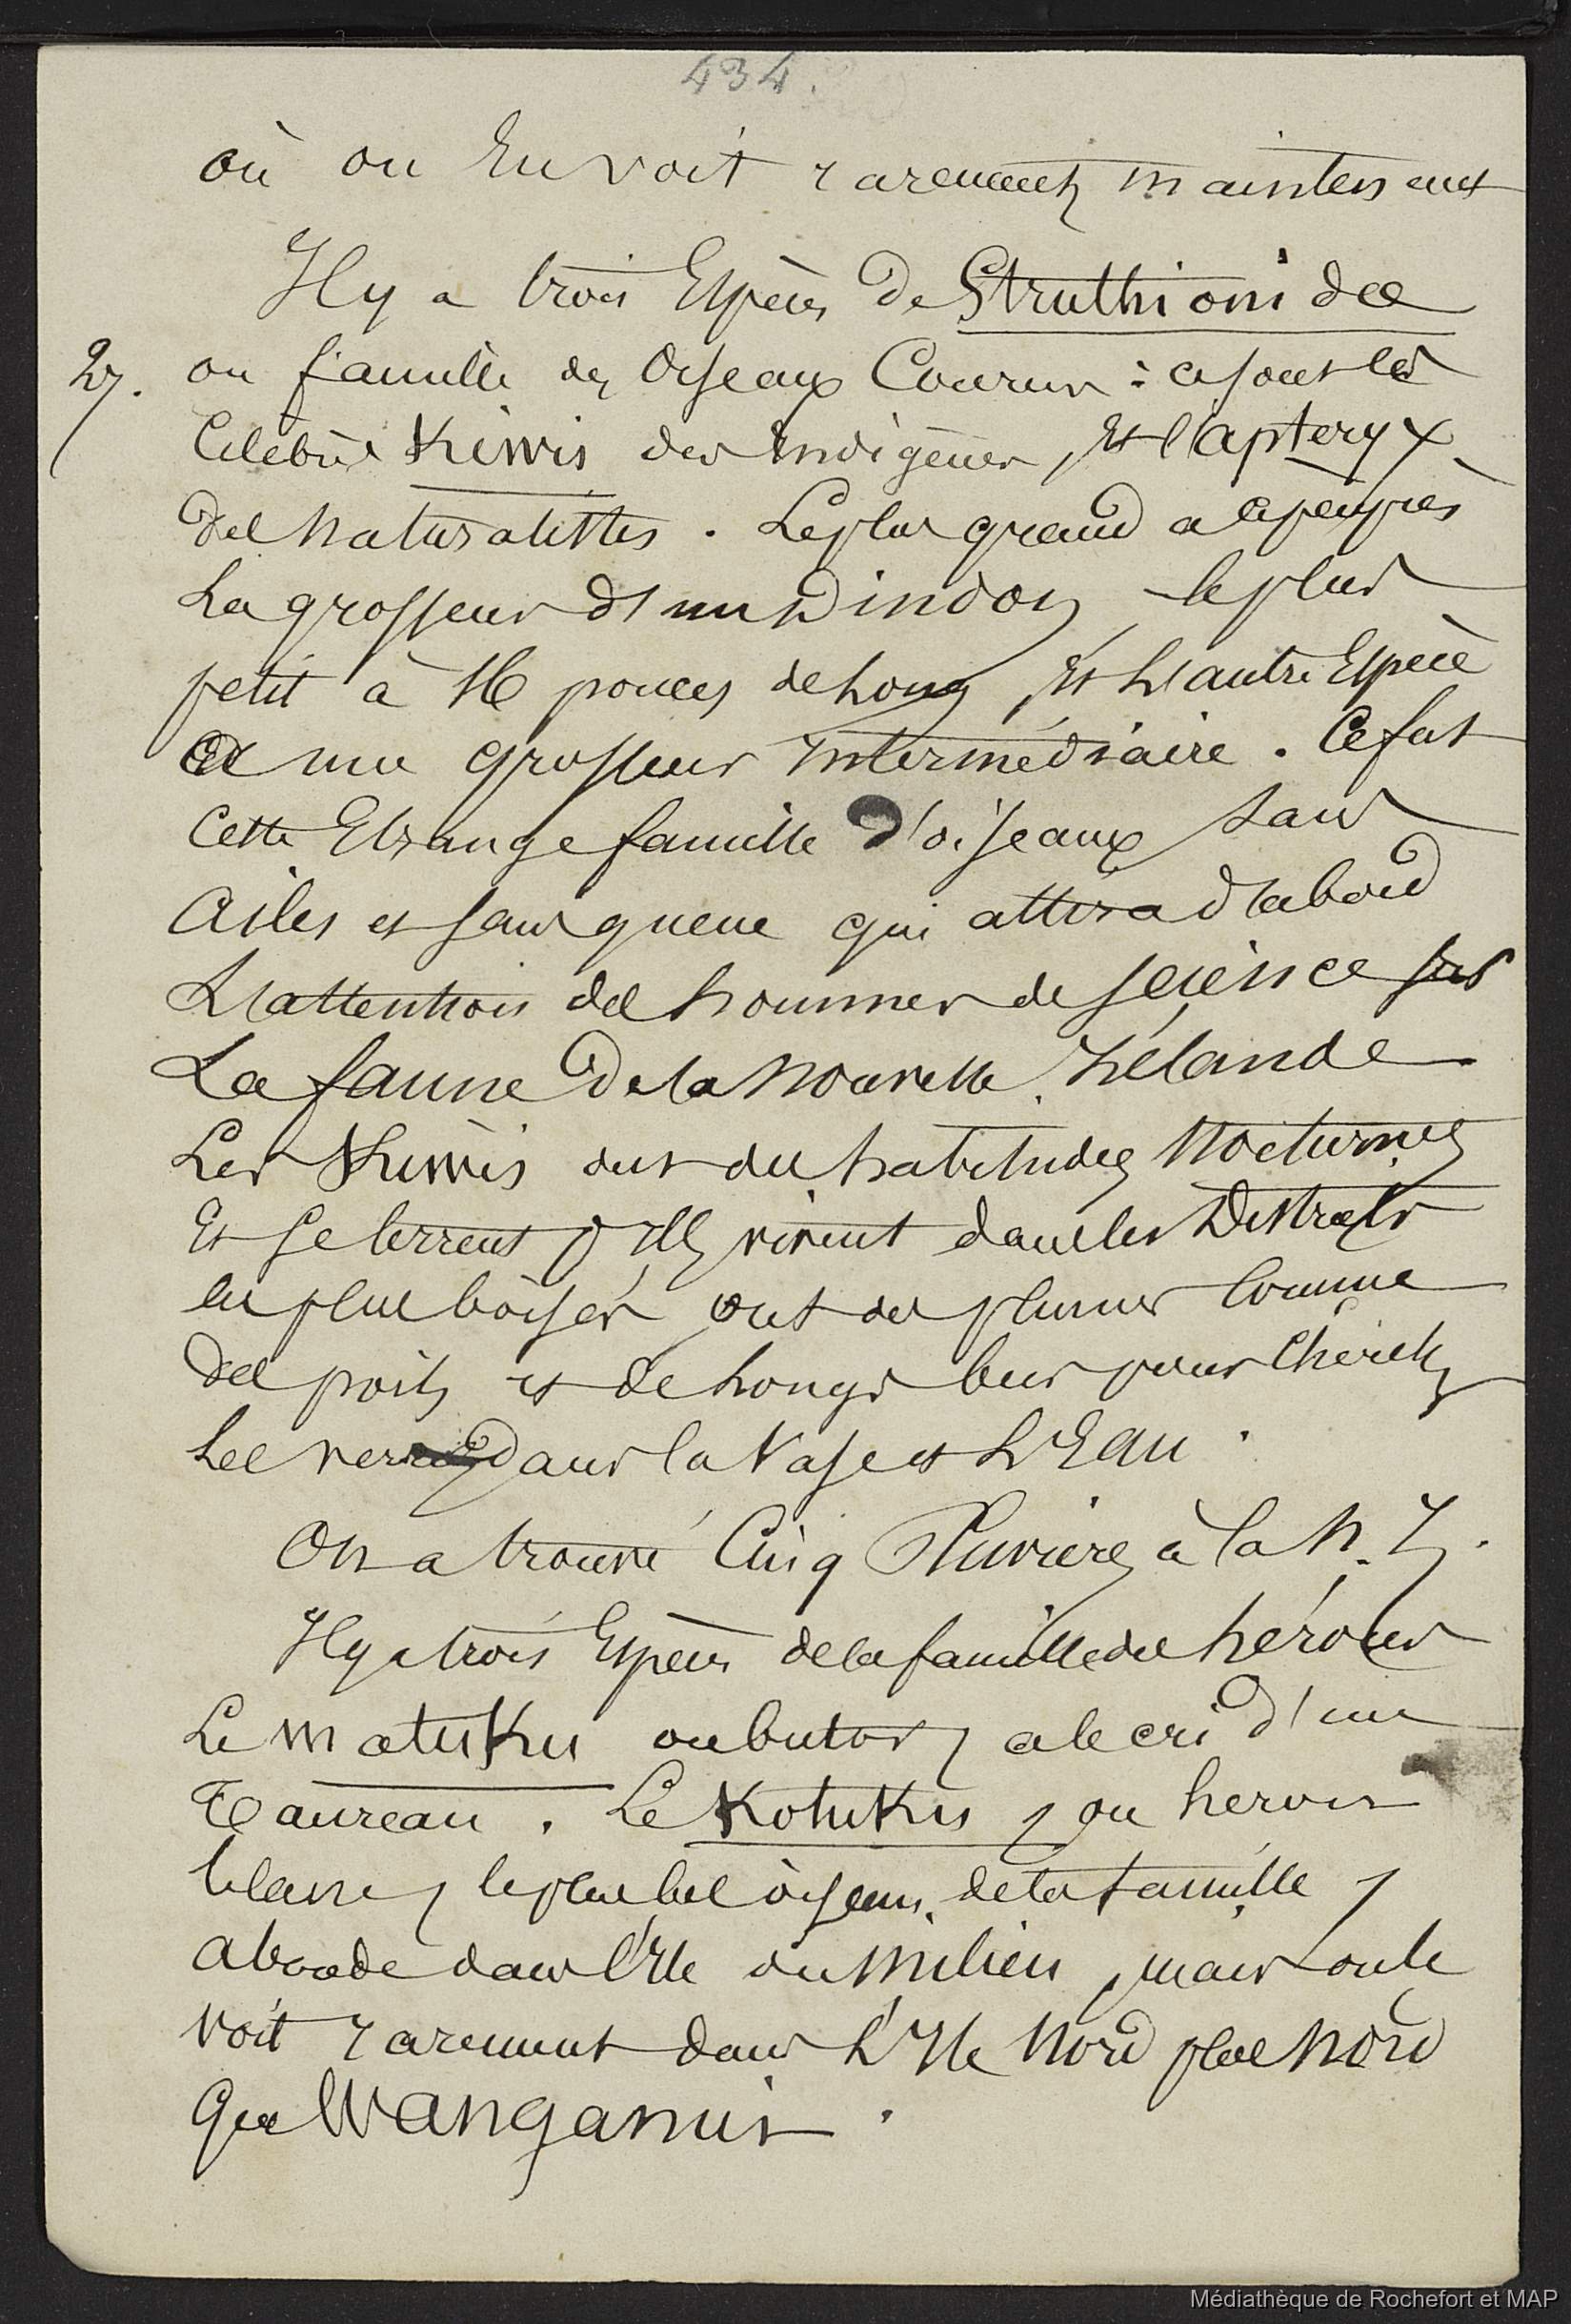 434.
où on En voit rarement maintenant
Il y a trois Espèces de Struthionidæ
27. ou famille des Oiseaux Coureurs : ce sont les
Célèbres Kiwis des Indigènes, Et l'apteryx
des Naturalistes. Le plus grand a àpeuprès
La grosseur d'un Dindon, le plus
petit à 16 pouces de Long, Et L'autre Espèce
est une grosseur Intermédiaire. Ce fut
Cette Etrange famille d'oiseaux sans
Ailes et sans queue qui attira d'abord
L'attention des hommes de Science sur
La faune de la Nouvelle Zélande
Les Kiwis ont des habitudes Nocturnes
Et Se terrent, Ils vivent dans les Districts
les plus boisés, ont des plumes Comme
des poils et de Longs becs pour Chercher
Les vers dans la Vase et L'Eau.
On a trouvé Cinq Pluviers à la N. Z.
Il y a trois Espèces de la famille des hérons
Le Matuku ou butor, a le cri d'un
Taureau. Le Kotuku, ou heron
blanc, le plus bel oiseau de la famille,
abonde dans l'Ile du Milieu, mais on le
Voit rarement dans L'Ile Nord plus Nord
Que Wanganui.
Médiathèque de Rochefort et MAP